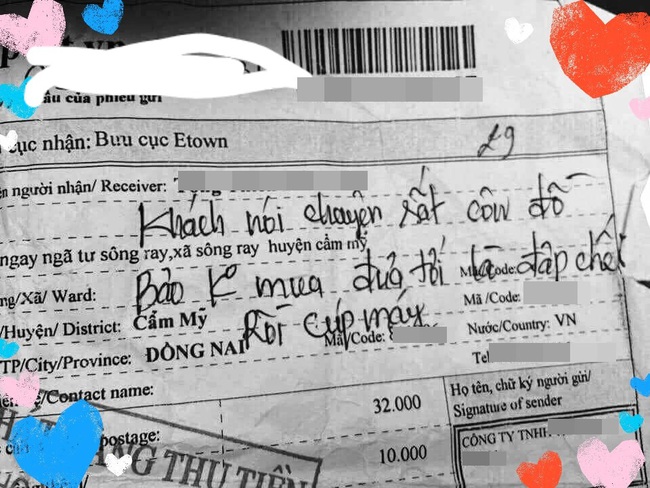 ầu của phiếu gửi
cục nhận: Bưu cục Etown
29
ên người nhận/ Receiver:
Khách nói chuyện sất côn đồ
ngay ngã tư sông ray,xã sông ray huyện cẩm mỹ
Bảo K mua đưa tới là đập chết
ng/Xã/ Ward:
Mã/Code:
Mã /Code:
Rồi cúp máy
/Huyện/ District: Cẩm Mỹ
Nước/Country: VN
TP/City/Province: ĐỒNG NAI
Mã/Code:
Tel
/Contact name:
32.000
Họ tên, chữ ký người gửi/
Signature of sender
postage:
10.000
CÔNG TY TNHH
NG THU TIỀN